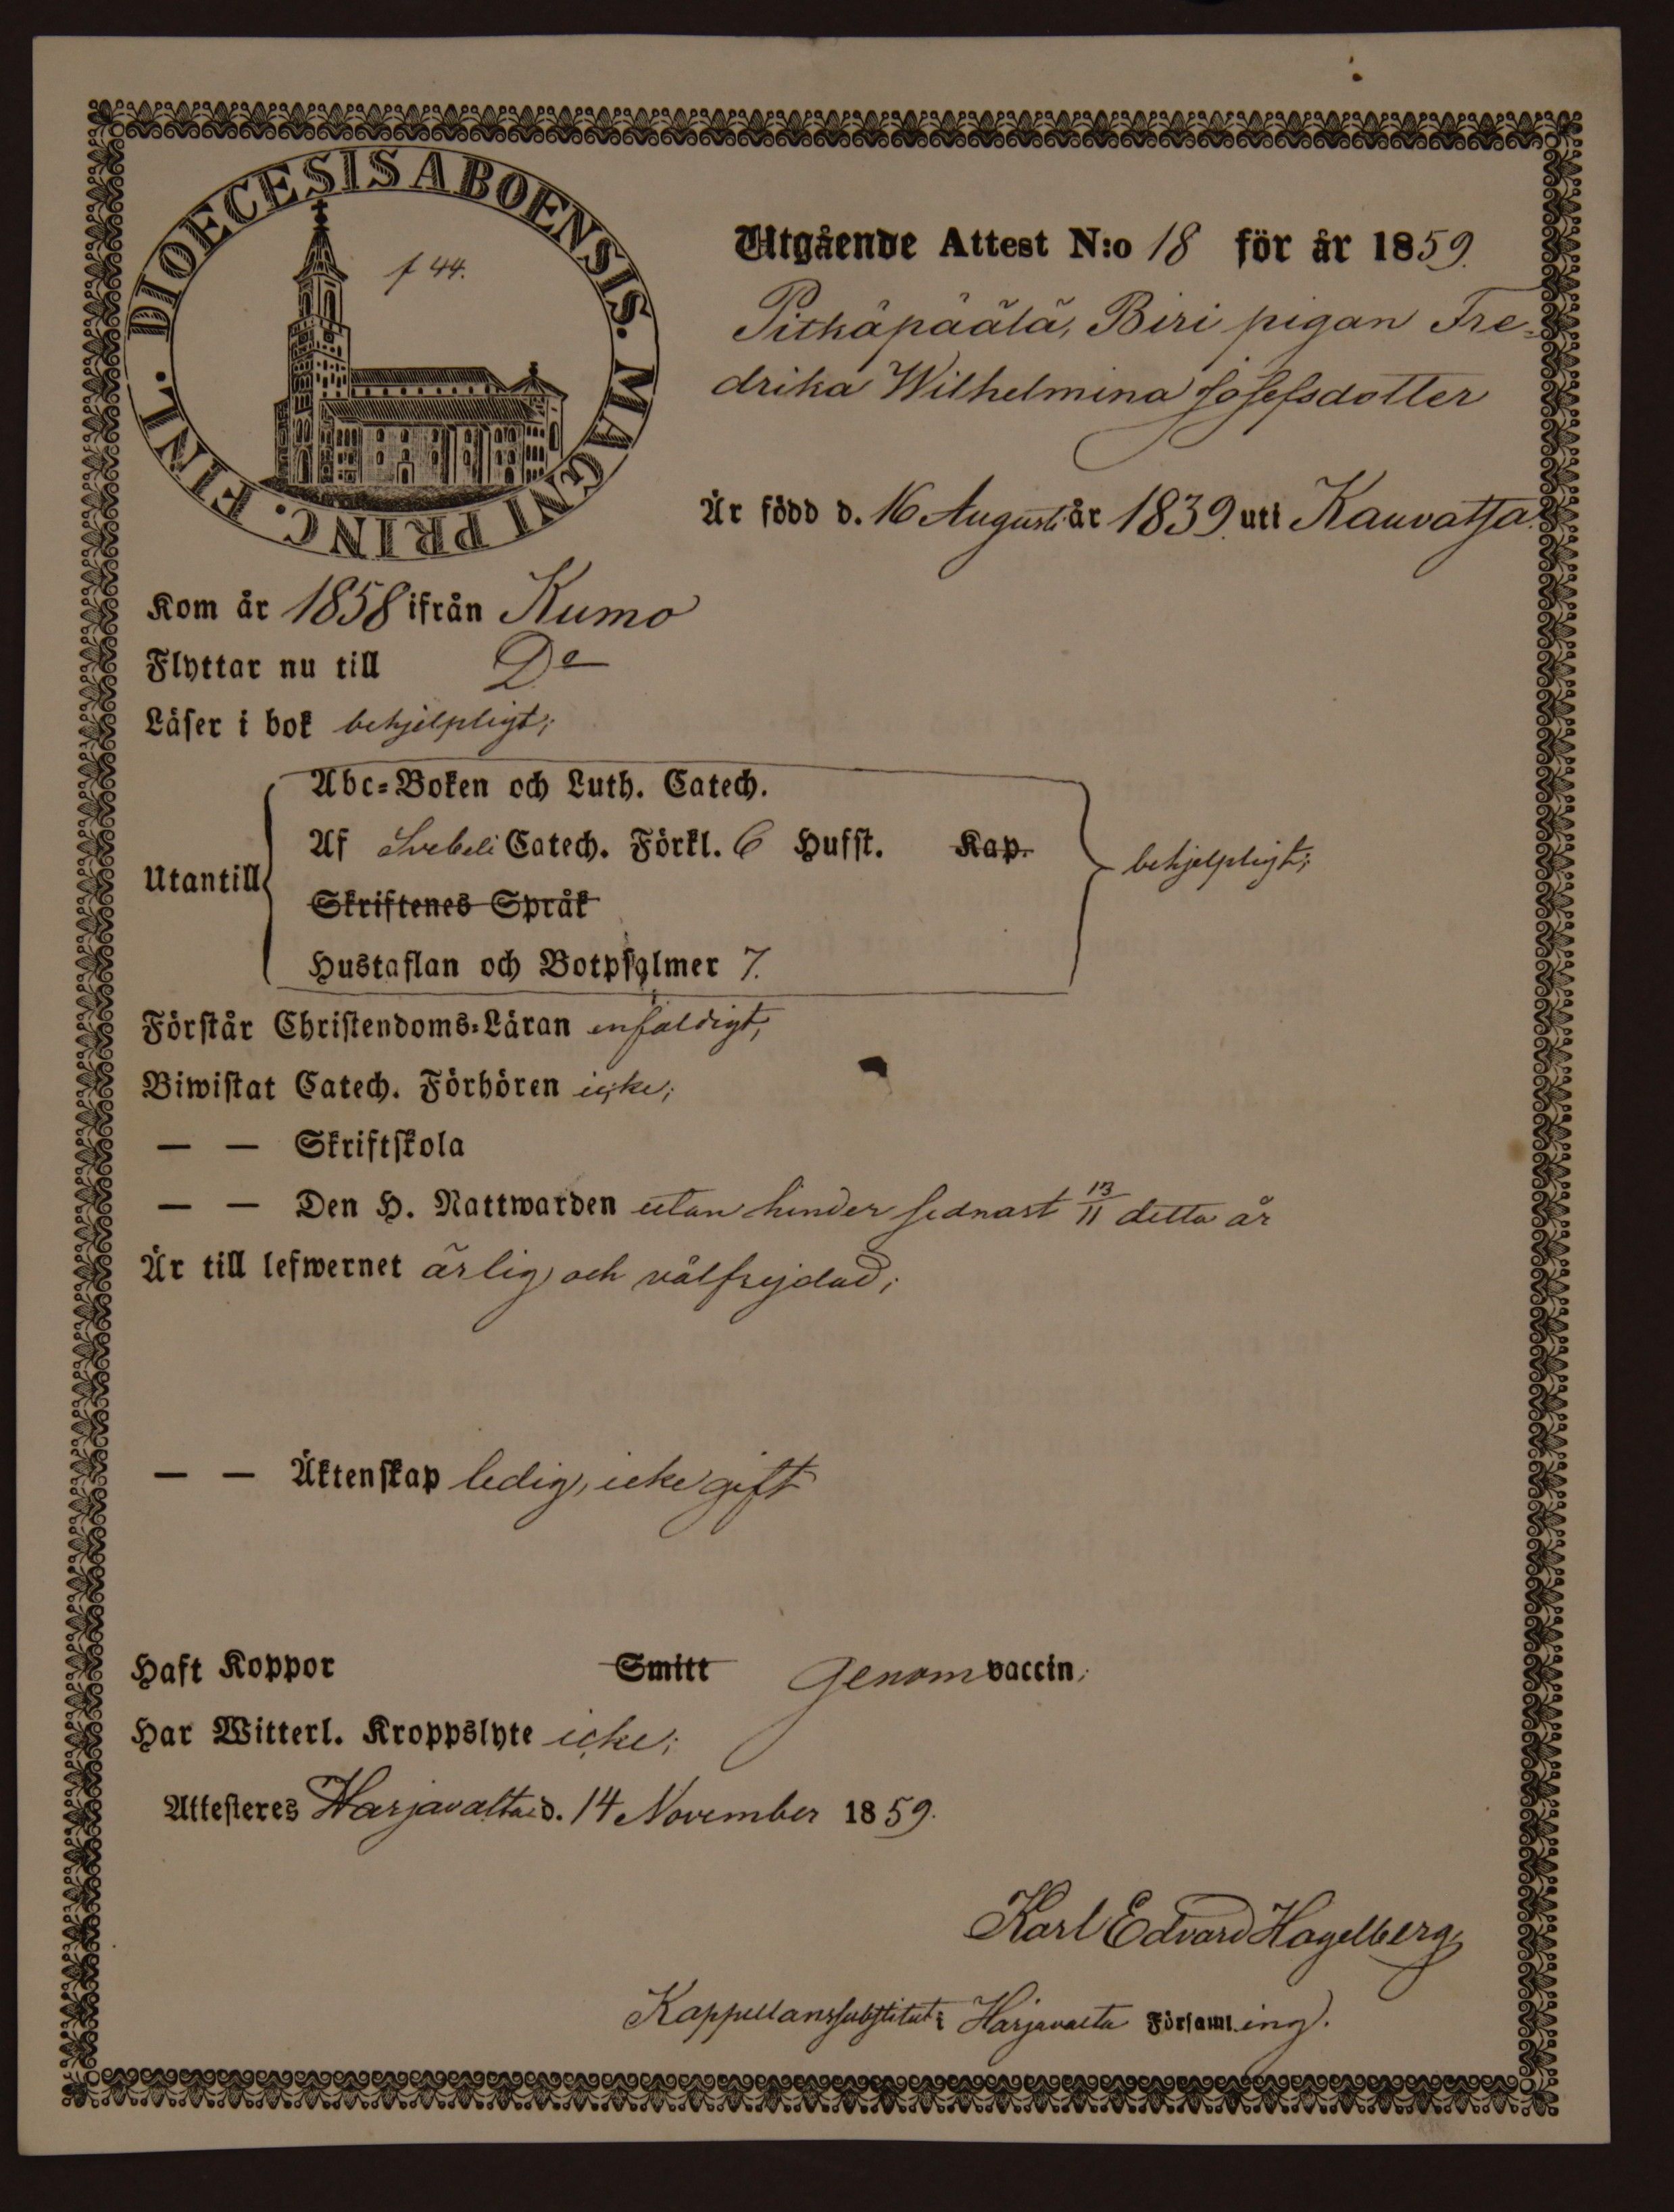 DIOECESIS ABOENSIS. MAGNI PRINC. FINL.
f 44.
Utgående Attest N:o 18 för år 1859.
Pitkäpäälä, Biri pigan Fre=
drika Wilhelmina Josefsdotter
Är född d. 16 Augusti år 1839. uti Kauvatsa.
Kom år 1858 ifrån Kumo
Flyttar nu till Do
Läser i bok behjelpligt;
Abc=Boken och Luth. Catech.
Af Svebeli Catech. Förkl. 6 Hufst. Kap.
Utantill
behjelpligt;
Skriftenes Språk
Hustaflan och Botpsalmer 7.
Förstår Christendoms=Läran enfaldigt;
Biwistat Catech. Förhören icke;
— — Skriftskola
— — Den H. Nattwarden utan hinder sednast 13/11 detta år
Är till lefwernet ärlig och välfrejdad;
— — Äktenskap ledig, icke gift
Haft Koppor Smitt genom vaccin;
Har Witterl. Kroppslyte icke;
Attesteres Harjavalta d. 14 November 1859.
Karl Edvard Hagelberg,
Kappellanssubstitut i Harjavalta Församling.